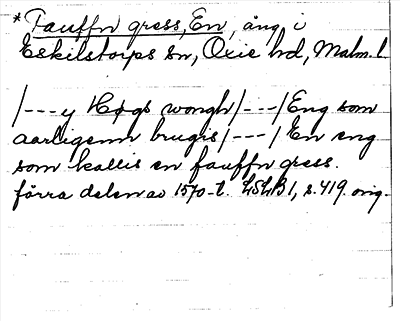 *Fauffn gress, En, äng i
Eskilstorps sn, Oxie hd, Malm. l
/---y Høgs wongh/---/Eng som
aarligenn brugis/---/En eng
som kallis en fauffn gress.
förra delen av 1570-t. LSLB 1, s. 419. orig.